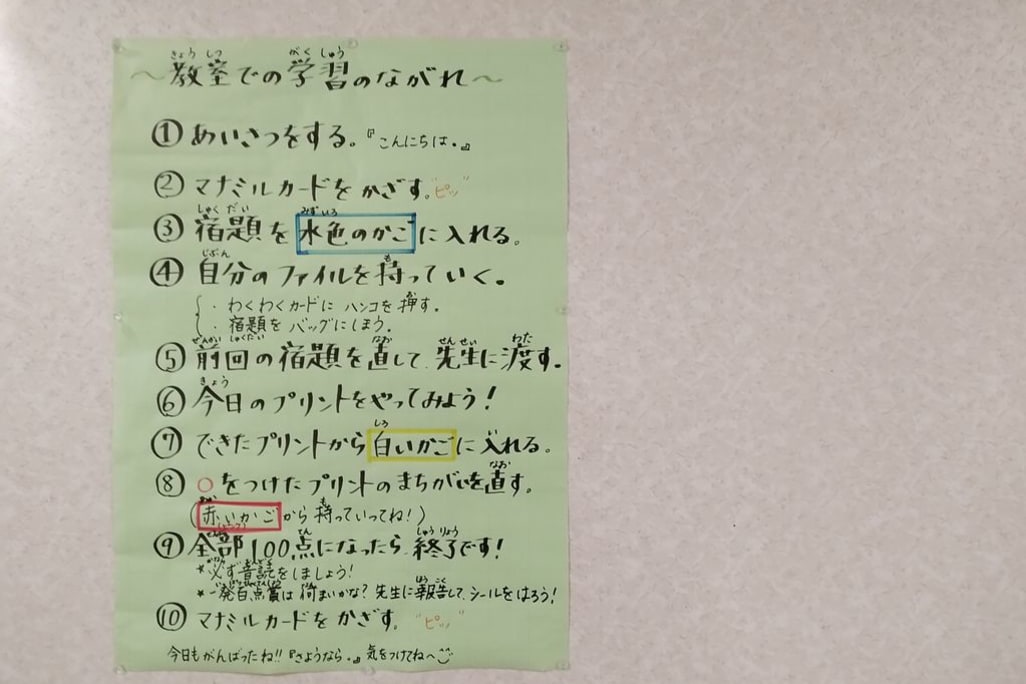 ～教室での学習のながれ～
① あいさつをする。『こんにちは。』
② マナミルカードをかざす。"ピッ"
③ 宿題を水色のかごに入れる。
④ 自分のファイルを持っていく。
・わくわくカードにハンコを押す。
・宿題をバッグにしまう。
⑤ 前回の宿題を直して、先生に渡す。
⑥ 今日のプリントをやってみよう！
⑦ できたプリントから白いかごに入れる。
⑧ ○をつけたプリントのまちがいを直す。
（赤いかごから持っていってね！）
⑨ 全部100点になったら、終了です！
*必ず音読をしましょう！
*一発百点賞は何まいかな？先生に報告して、シールをはろう！
⑩ マナミルカードをかざす。"ピッ"
今日もがんばったね!!『さようなら。』気をつけてね〜